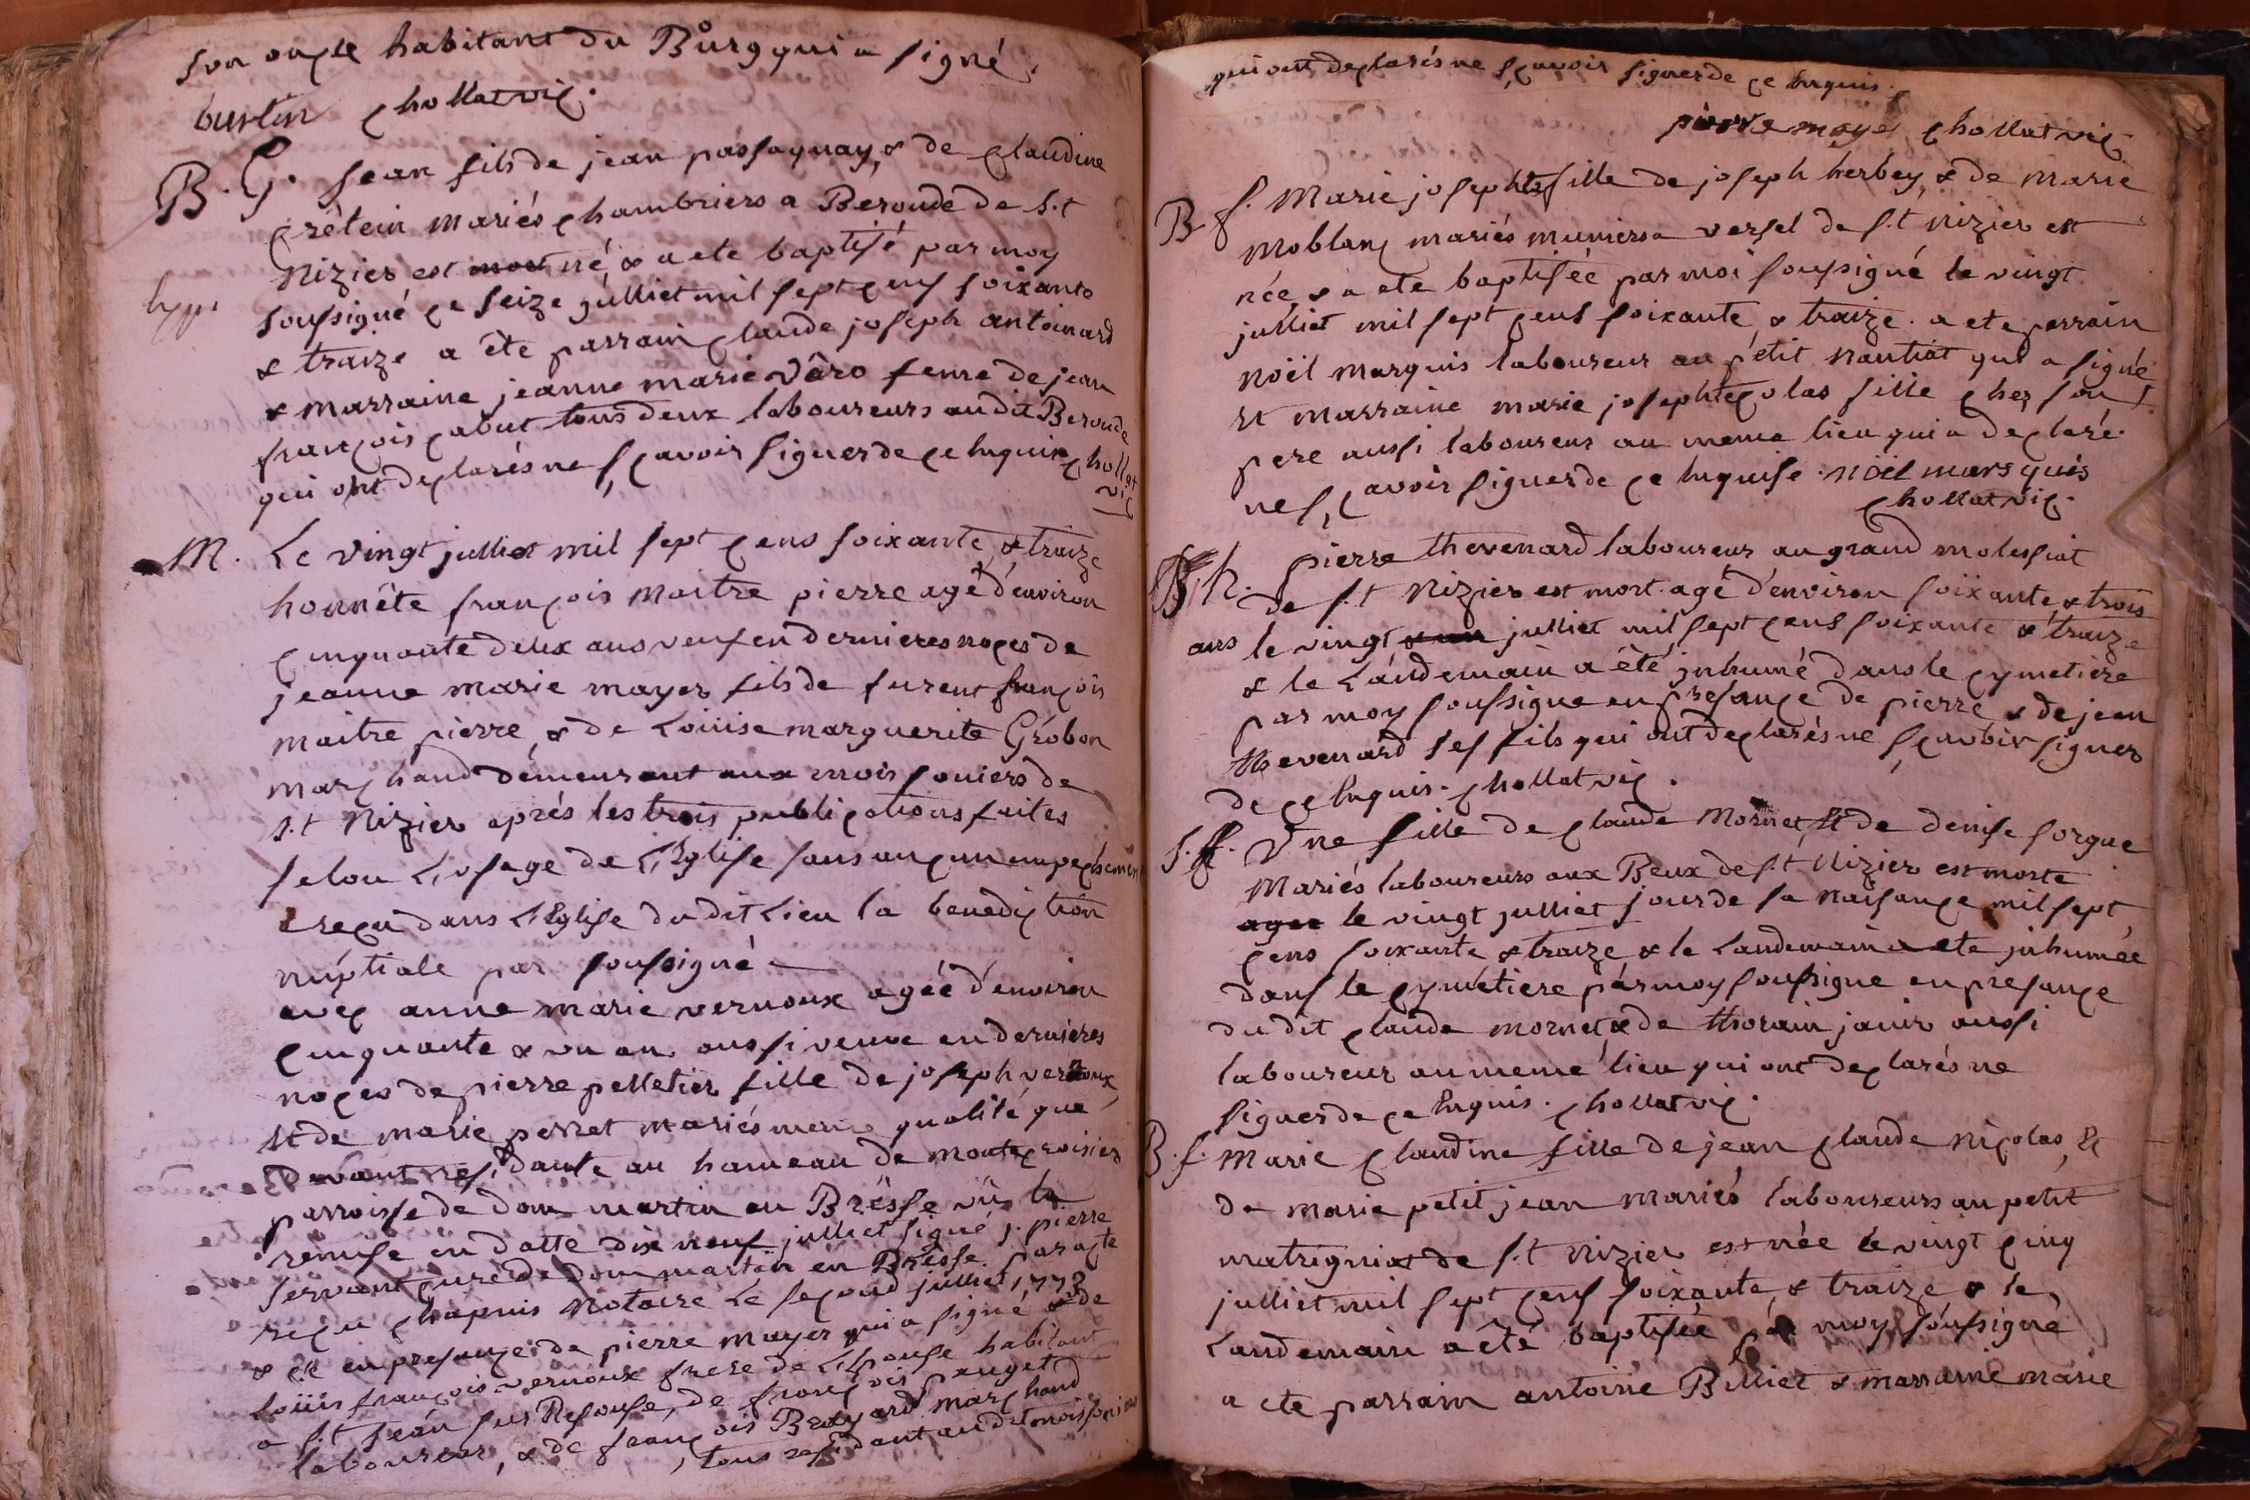 son oncle habitant du Bourg qui a signé.
burtin chollat vic.
B. G. Jean fils de jean passaquay & de claudine
crêtein mariés chambriers a Beroude de S.t
Nizier est mort né, & a ete baptisé par moy
soussigné ce seize julliet mil sept cens soixante
& traize a ête parrain claude joseph antoinard
& marraine jeanne marie Varo feme de jean
françois cabut tous deux laboureurs audit Beroude
qui ont declarés ne sçavoir signer de ce enquis chollat
vic
M. Le vingt julliet mil sept cens soixante & traize
honnête françois maitre pierre agé d'environ
cinquante deux ans veuf en dernieres noces de
jeanne marie mayer fils de furent françois
maitre pierre, & de Louise marguerite Grobon
marchand demeurant aux mois soniers de
S.t Nizier aprés les trois publications faites
selon L'usage de L'Eglise sans aucun empechement
a reçu dans L'Eglise du dit Lieu la benediction
nuptiale par soussigné
avec anne marie vernoux agée d'environ
cinquante & un an aussi veuve en dernieres
noces de pierre pelletier fille de joseph vernoux
et de marie perret mariés meme qualité que
devant residante au hameau de montecroisier
parroisse de dom martin en Bresse vû la
remise en datte dix neuf julliet signé j. pierre
servant curé de dom martin en Bresse. par acte
reçu chapuis Notaire Le second julliet 1773
& ce en presance de pierre mayer qui a signé & de
Loüis françois vernoux frere de L'Epouse habitant
a S.t Jean sur Resouse, de françois pauget
laboureur, & de françois Brayard marchand
, tous residant au dit mois soniers
qui ont declarés ne sçavoir signer de ce enquis.
pierre mayer chollat vic.
B f. Marie josephte fille de joseph herbey & de marie
moblanc mariés muniers a versel de S.t nizier est
née & a ete baptisée par moi soussigné le vingt
julliet mil sept cens soixante & traize. a ete parrain
noël marquis laboureur au petit nantiat qui a signé
et marraine marie josephte colas fille chez son
pere aussi laboureur au meme lieu qui a declaré
ne sçavoir signer de ce enquise. noël mars quis
chollat vic.
h. pierre thevenard laboureur au grand molessiat
de S.t Nizier est mort agé d'environ soixante & trois
ans le vingt & un julliet mil sept cens soixante & traize
& le Landemain a été inhumé dans le cymetiere
par moy soussigné en presance de pierre & de jean
thevenard ses fils qui ont declarés ne sçavoir signer
de ce enquis. chollat vic.
S. ff. Une fille de claude Mornet Et de denise sorgue
Mariés laboureurs aux Beux de S.t Nizier est morte
agee le vingt julliet jour de sa naisance mil sept
cens soixante & traize & le Landemain a ete inhumée
dans le cymetiere par moy soussigné en presance
du dit claude mornet & de thorain janin aussi
laboureur au meme lieu qui ont declarés ne
signer de ce enquis. chollat vic.
B. f. Marie claudine fille de jean claude nicolas, Et
de marie petit jean mariés laboureurs au petit
matrigniat de S.t nizier est née le vingt cinq
julliet mil sept cens soixante & traize & le
Landemain a été baptisée par moy soussigné
a ete parrain antoine Billiet & marraine marie